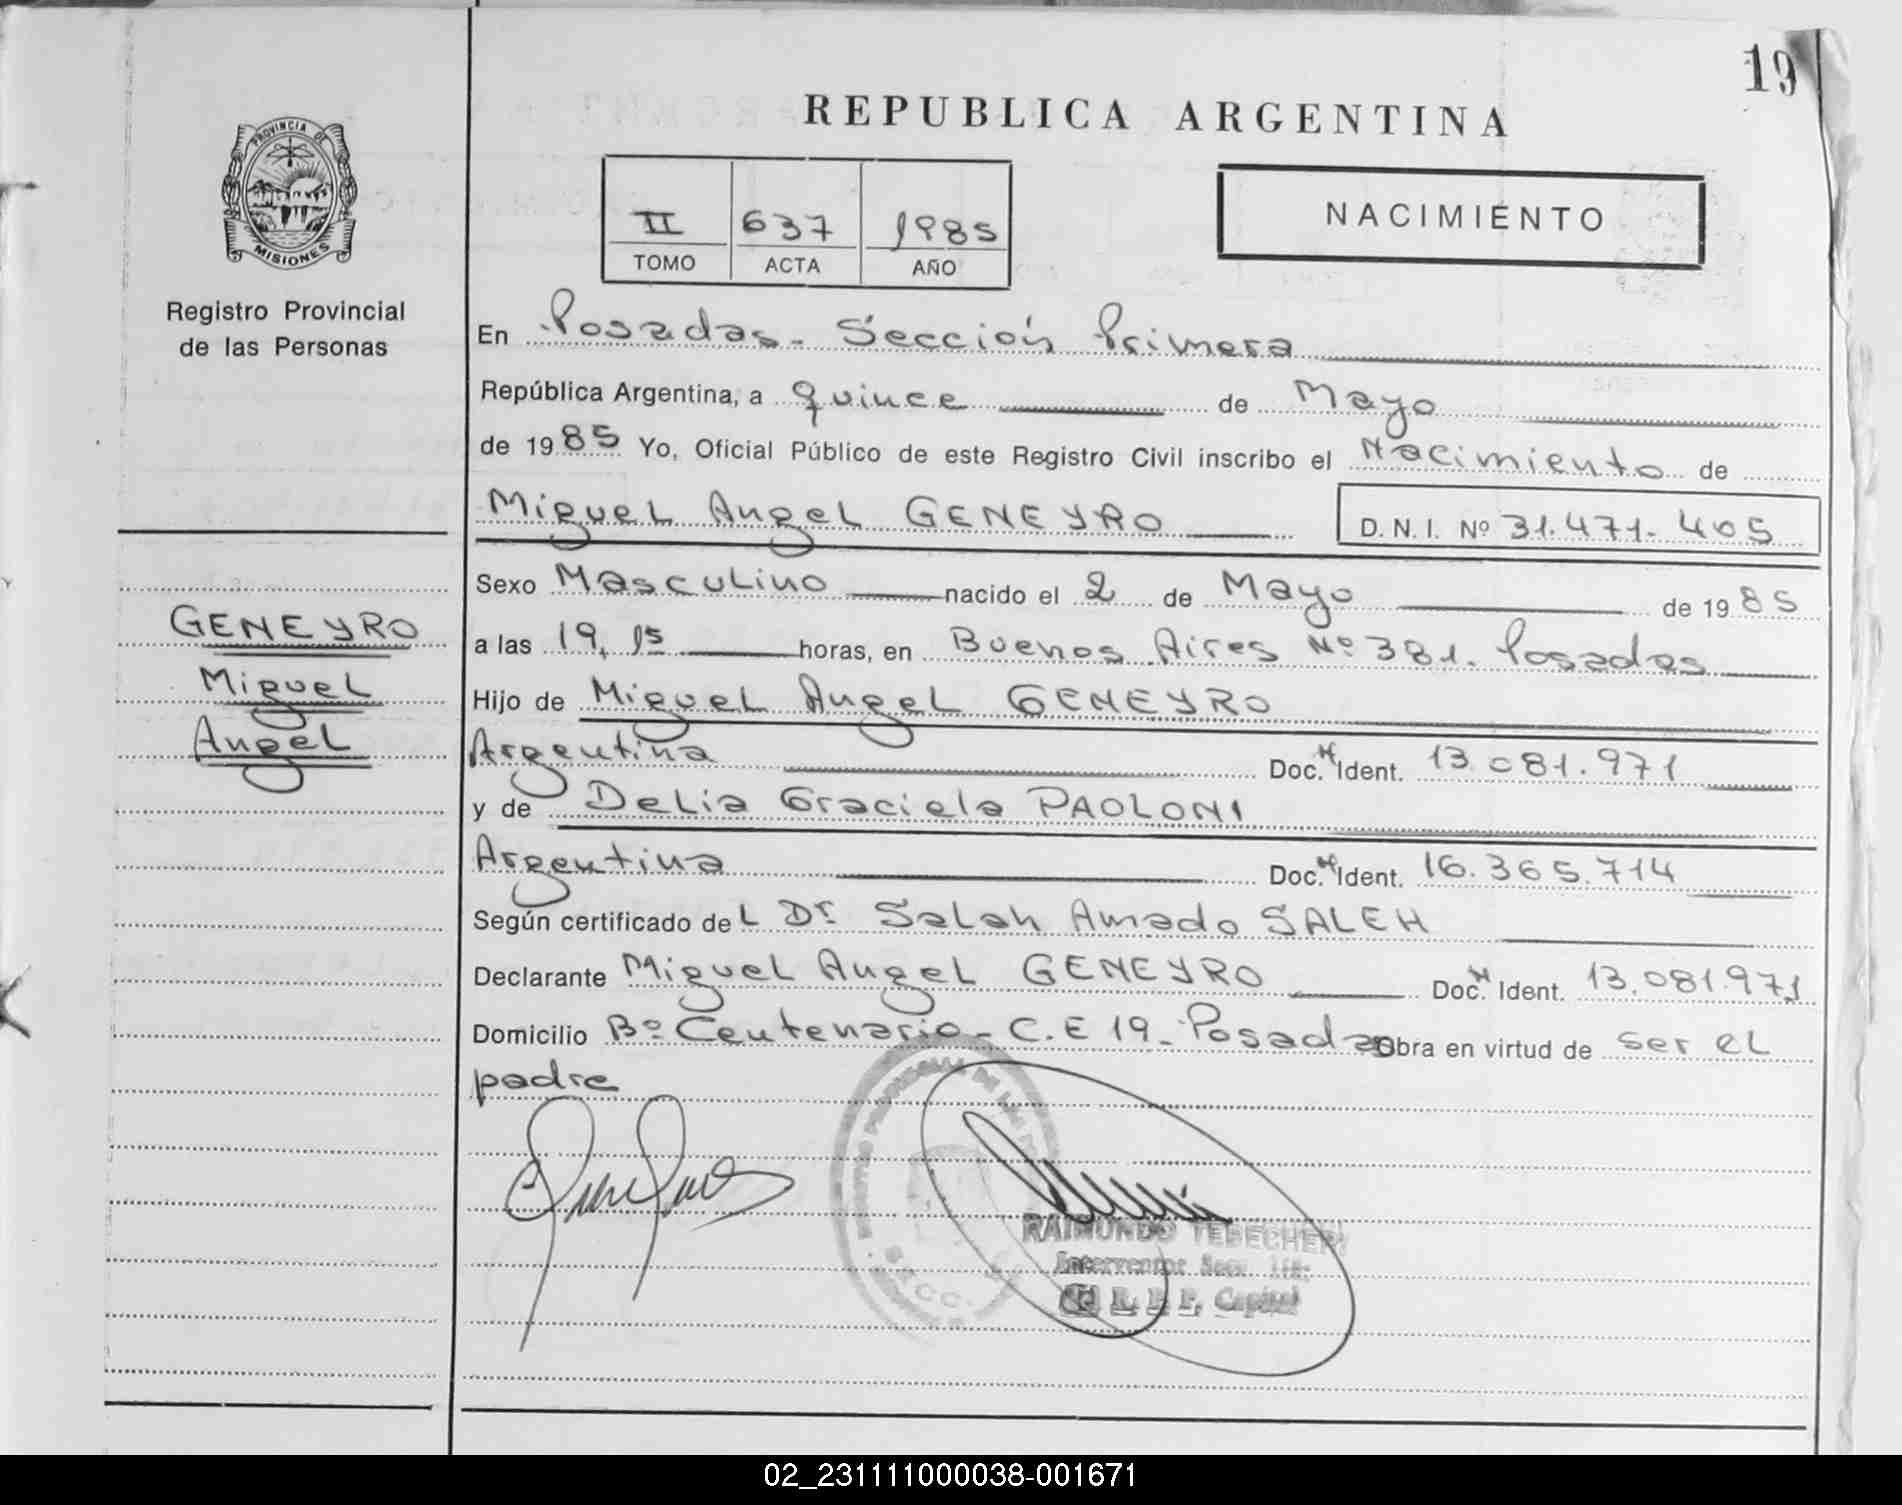 19
REPUBLICA ARGENTINA
PROVINCIA DE
MISIONES
Registro Provincial
de las Personas
II 637 1985
TOMO ACTA AÑO
NACIMIENTO
En Posadas - Sección Primera
República Argentina, a quince de Mayo
de 1985 Yo, Oficial Público de este Registro Civil inscribo el Nacimiento de
Miguel Angel GENEYRO D.N.I. Nº 31.471.405
Sexo Masculino nacido el 2 de Mayo de 1985
a las 19,15 horas, en Buenos Aires Nº 381. Posadas
Hijo de Miguel Angel GENEYRO
Argentina Doc. Ident. 13.081.971
y de Delia Graciela PAOLONI
Argentina Doc. Ident. 16.365.714
Según certificado del Dr Salah Amado SALEH
Declarante Miguel Angel GENEYRO Doc. Ident. 13.081.971
Domicilio Bº Centenario - C.E 19 - Posadas Obra en virtud de ser el
padre
GENEYRO
Miguel
Angel
RAIMUNDO
Interventor Secc.
R. P. P. Capital
02_231111000038-001671